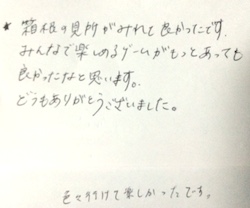 * 箱根の見所がみれて良かったです。
みんなで楽しめるゲームがもっとあっても
良かったなと思います。
どうもありがとうございました。
色々行けて楽しかったです。